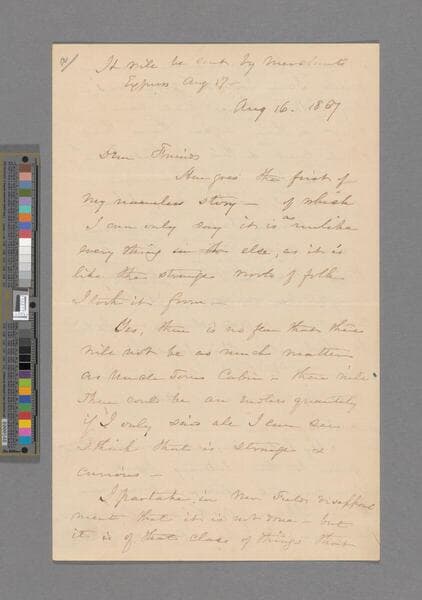 It will be sent by Merchants
Express Aug 17 -
Aug 16. 1867
Dear Friends
Here goes the first of
my nameless story - of which
I can only say it is as unlike
every thing else, as it is
like the strange world of folks
I took it from -
Yes, there is no fear that there
will not be as much matter
as Uncle Toms Cabin - there will
There could be an endless quantity
if I only said all I can see
& think that is strange &
curious -
I partake in disappoint
ment that it is not done - but
it is of that class of things that